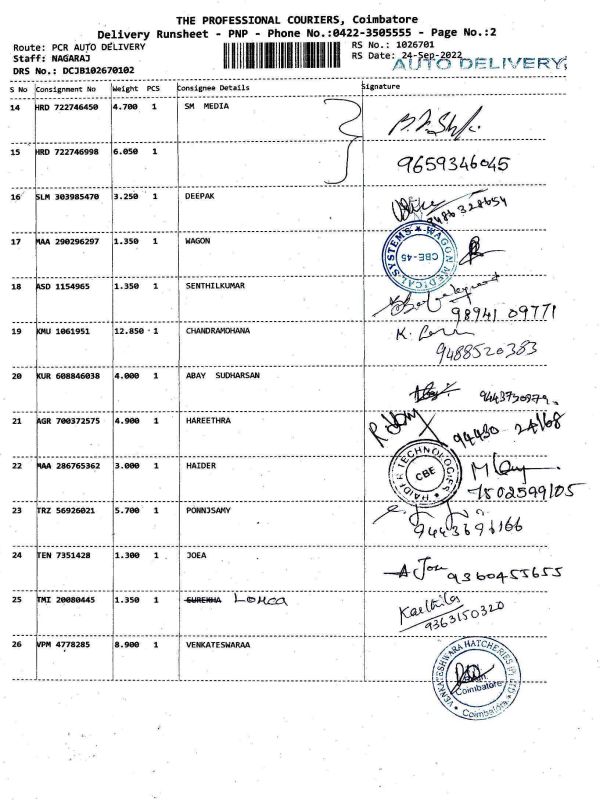 THE PROFESSIONAL COURIERS, Coimbatore
Delivery Runsheet - PNP - Phone No.:0422-3505555 - Page No.:2
Route: PCR AUTO DELIVERY RS No.: 1026701
Staff: NAGARAJ RS Date: 24-Sep-2022
AUTO DELIVERY
DRS No.: DCJB102670102
S No Consignment No Weight PCS Consignee Details Signature
14 HRD 722746450 4.700 1 SM MEDIA
15 HRD 722746998 6.050 1 9659346045
16 SLM 303985470 3.250 1 DEEPAK 9486328654
17 MAA 290296297 1.350 1 WAGON
WAGON MEDICAL SYSTEMS CBE-45
18 ASD 1154965 1.350 1 SENTHILKUMAR 98941 09771
19 KMU 1061951 12.850 1 CHANDRAMOHANA 9488520383
20 KUR 608846038 4.000 1 ABAY SUDHARSAN
21 AGR 700372575 4.900 1 HAREETHRA 94430 24168
22 MAA 286765362 3.000 1 HAIDER
HAIDER TECHNOLOGIES CBE
23 TRZ 56926021 5.700 1 PONNJSAMY
24 TEN 7351428 1.300 1 JOEA 9360455655
25 TMI 20080445 1.350 1 SUREKHA 9363150320
26 VPM 4778285 8.900 1 VENKATESWARAA
VENKATESHWARA HATCHERIES (P) LTD Coimbatore